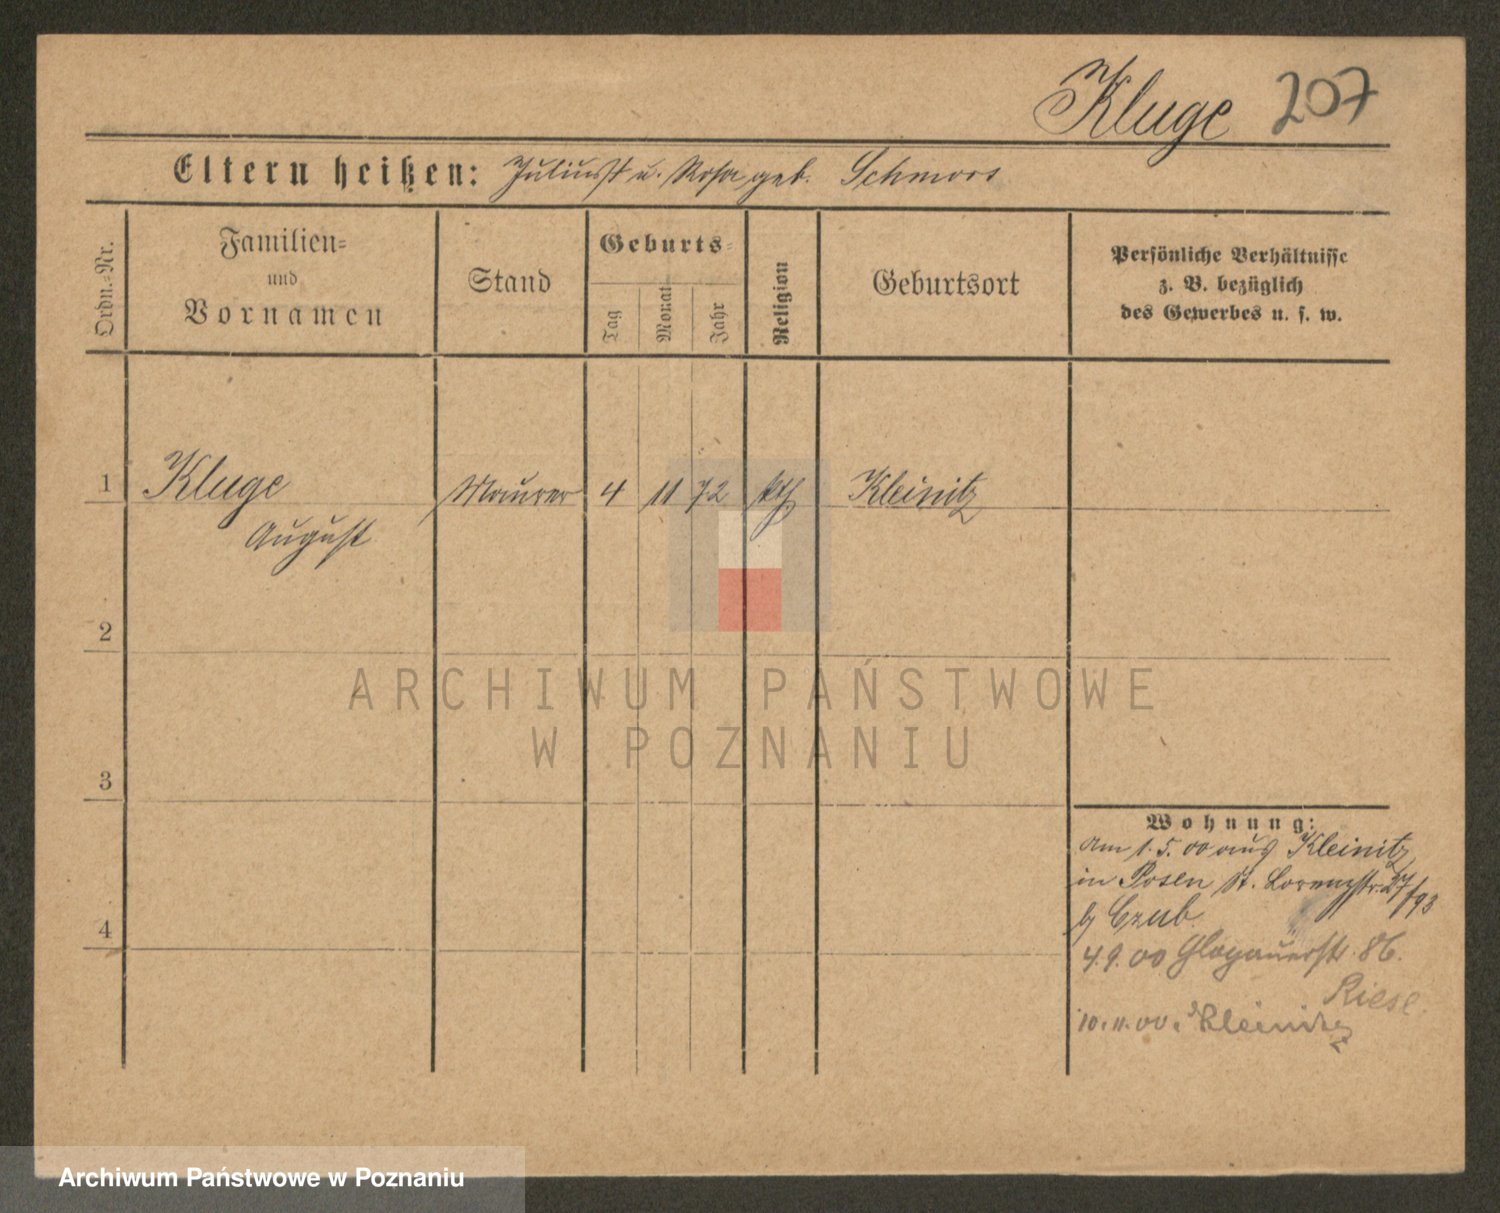 Kluge 207
Eltern heißen: Julius u. Rosa geb. Schmors
Ordn.=Nr.
Familien=
und
Vornamen
Stand
Geburts=
Tag
Monat
Jahr
Religion
Geburtsort
Persönliche Verhältnisse
z. B. bezüglich
des Gewerbes u. s. w.
1 Kluge Maurer 4 11 72 kth Kleinitz
August
2
3
4
Wohnung:
am 1.5.00 aus Kleinitz
in Posen St. Lorenzstr. 27/93
b/ Czub
4.9.00 Glogauerstr. 86.
Riese
10.11.00. Kleinitz
ARCHIWUM PAŃSTWOWE
W POZNANIU
Archiwum Państwowe w Poznaniu